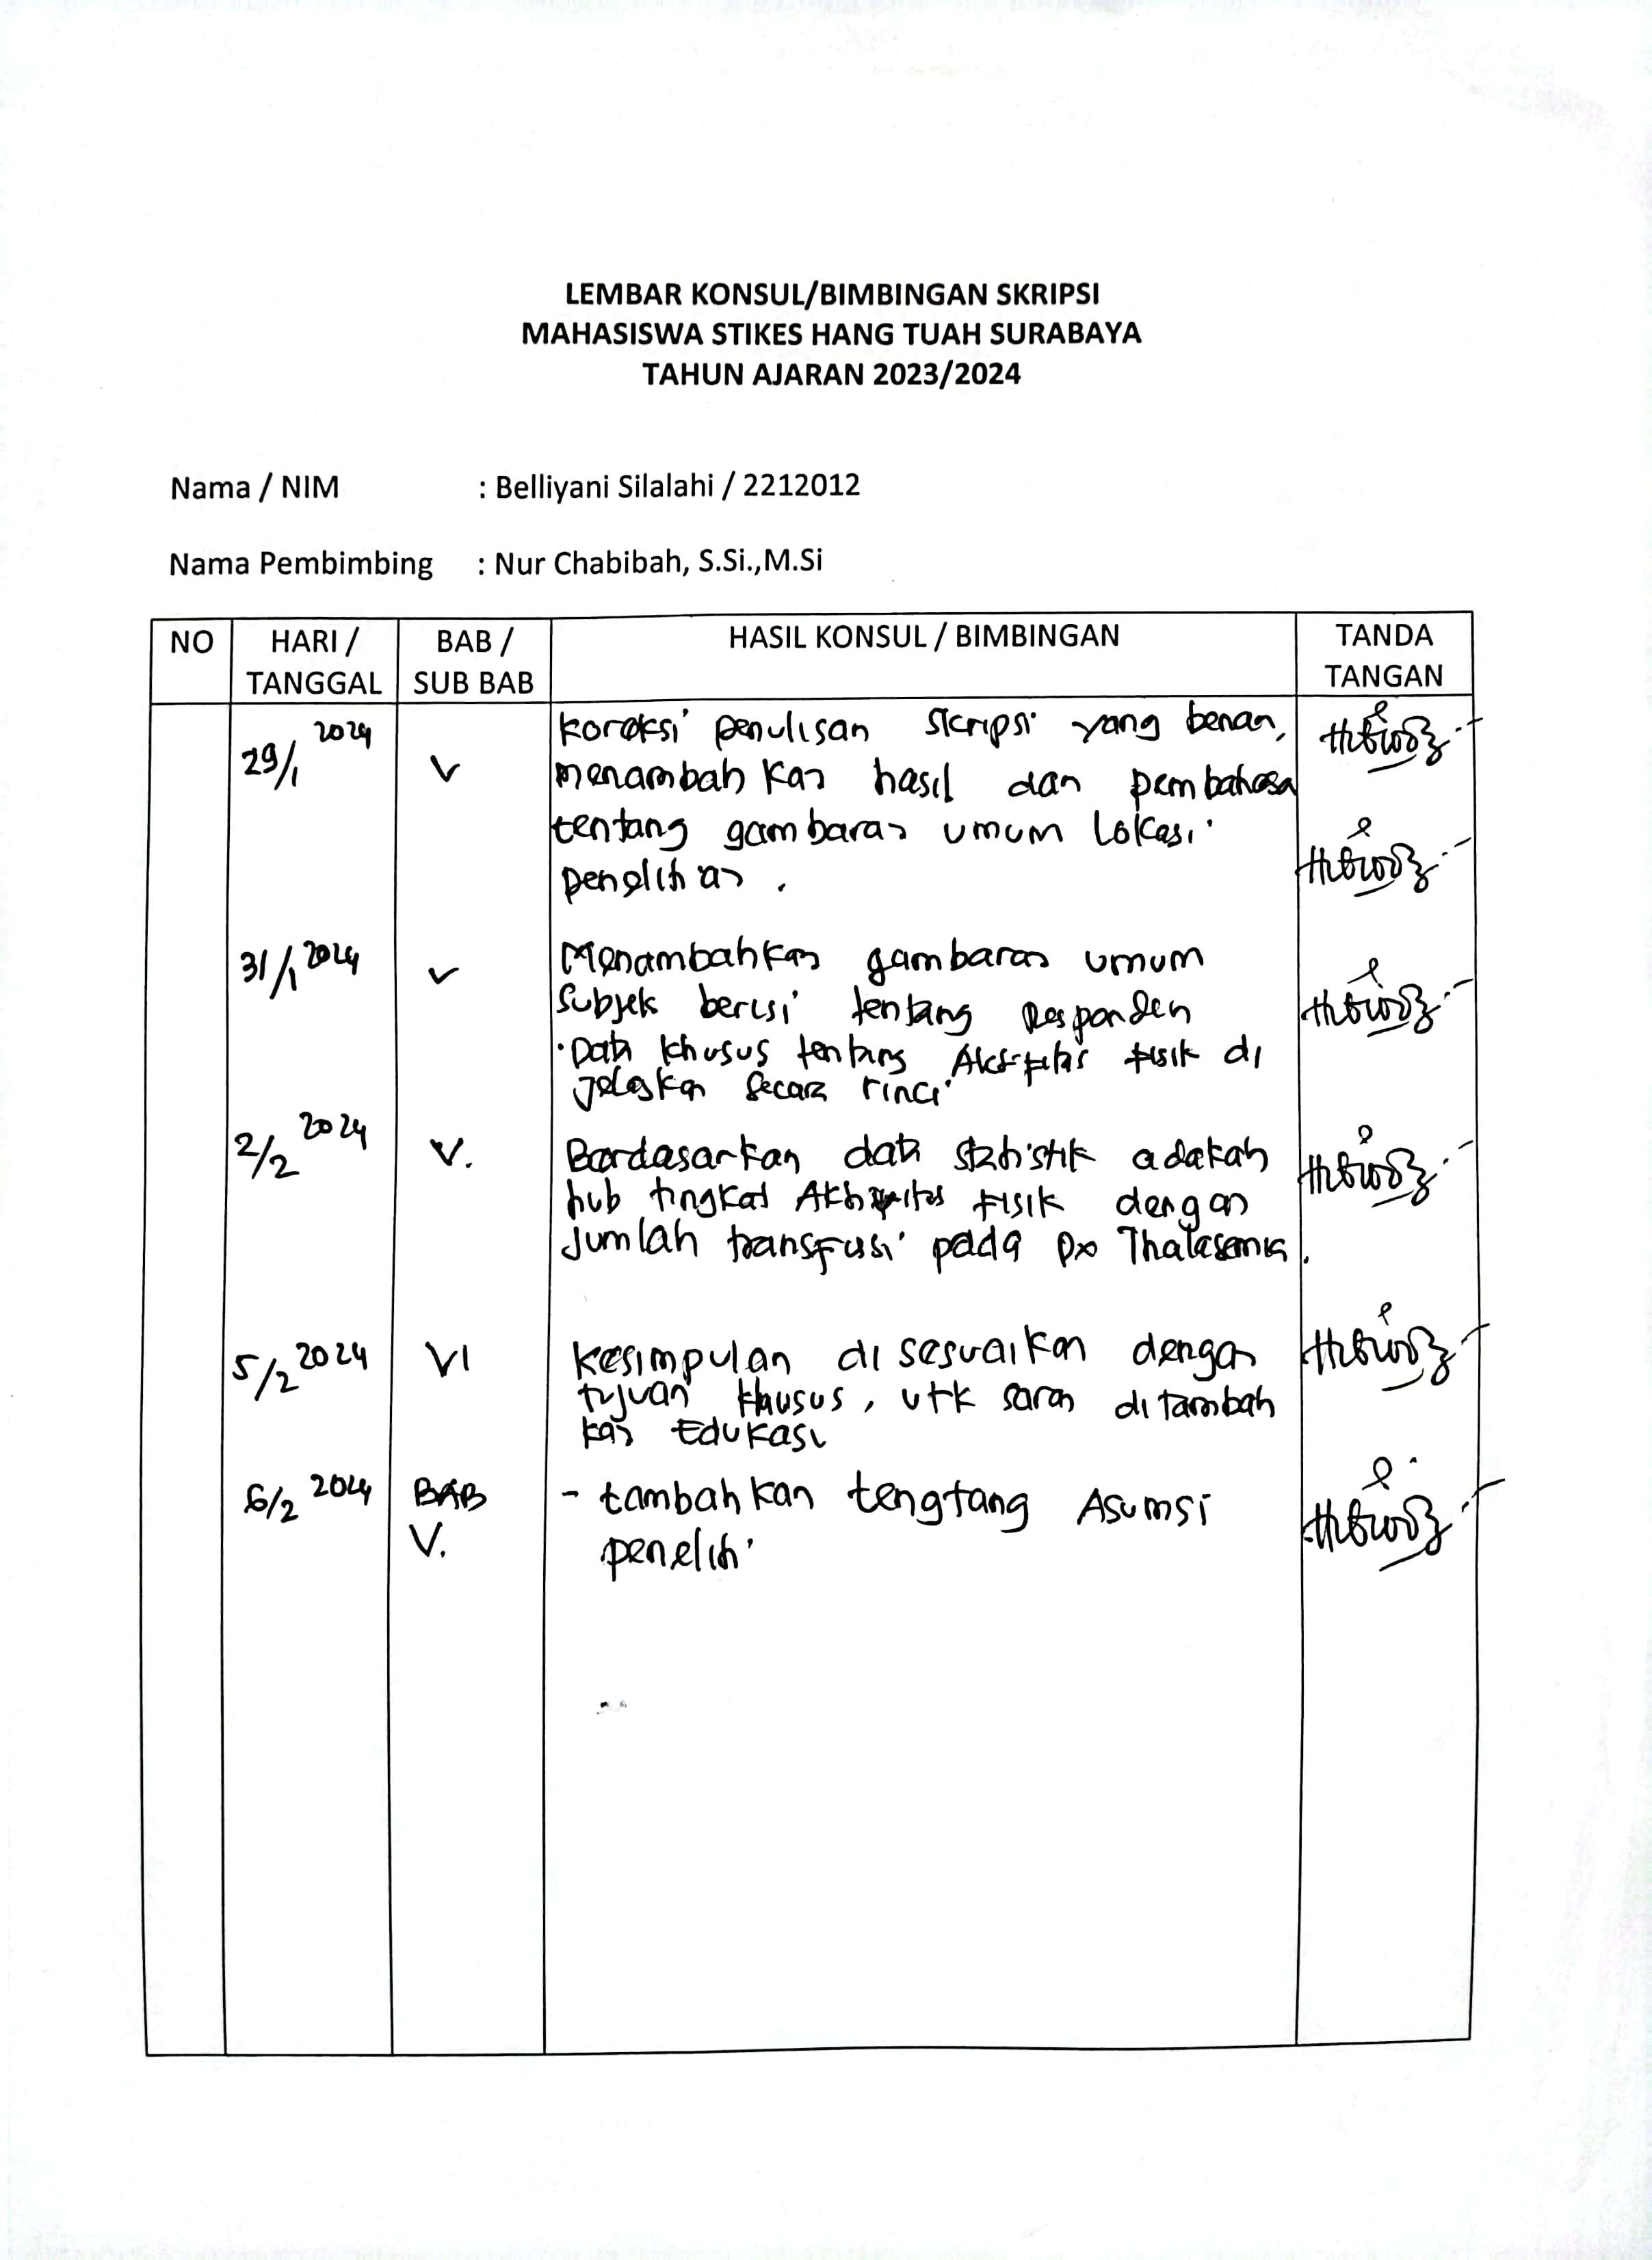 LEMBAR KONSUL/BIMBINGAN SKRIPSI
MAHASISWA STIKES HANG TUAH SURABAYA
TAHUN AJARAN 2023/2024
Nama / NIM : Belliyani Silalahi / 2212012
Nama Pembimbing : Nur Chabibah, S.Si.,M.Si
NO HARI / TANGGAL BAB / SUB BAB HASIL KONSUL / BIMBINGAN TANDA TANGAN
29/1 2024 V Koreksi penulisan skripsi yang benar,
menambahkan hasil dan pembahasa
tentang gambaran umum lokasi
penelitian.
31/1 2024 V Menambahkan gambaran umum
Subjek berisi tentang Responden
· Data khusus tentang Aktifitas fisik di
jelaskan secara rinci
2/2 2024 V. Berdasarkan data statistik adakah
hub tingkat Aktifitas fisik dengan
Jumlah transfusi pada px Thalasemia.
5/2 2024 VI Kesimpulan di sesuaikan dengan
tujuan khusus, utk saran di tambah
kan Edukasi
6/2 2024 BAB V. - tambahkan tengtang Asumsi
peneliti